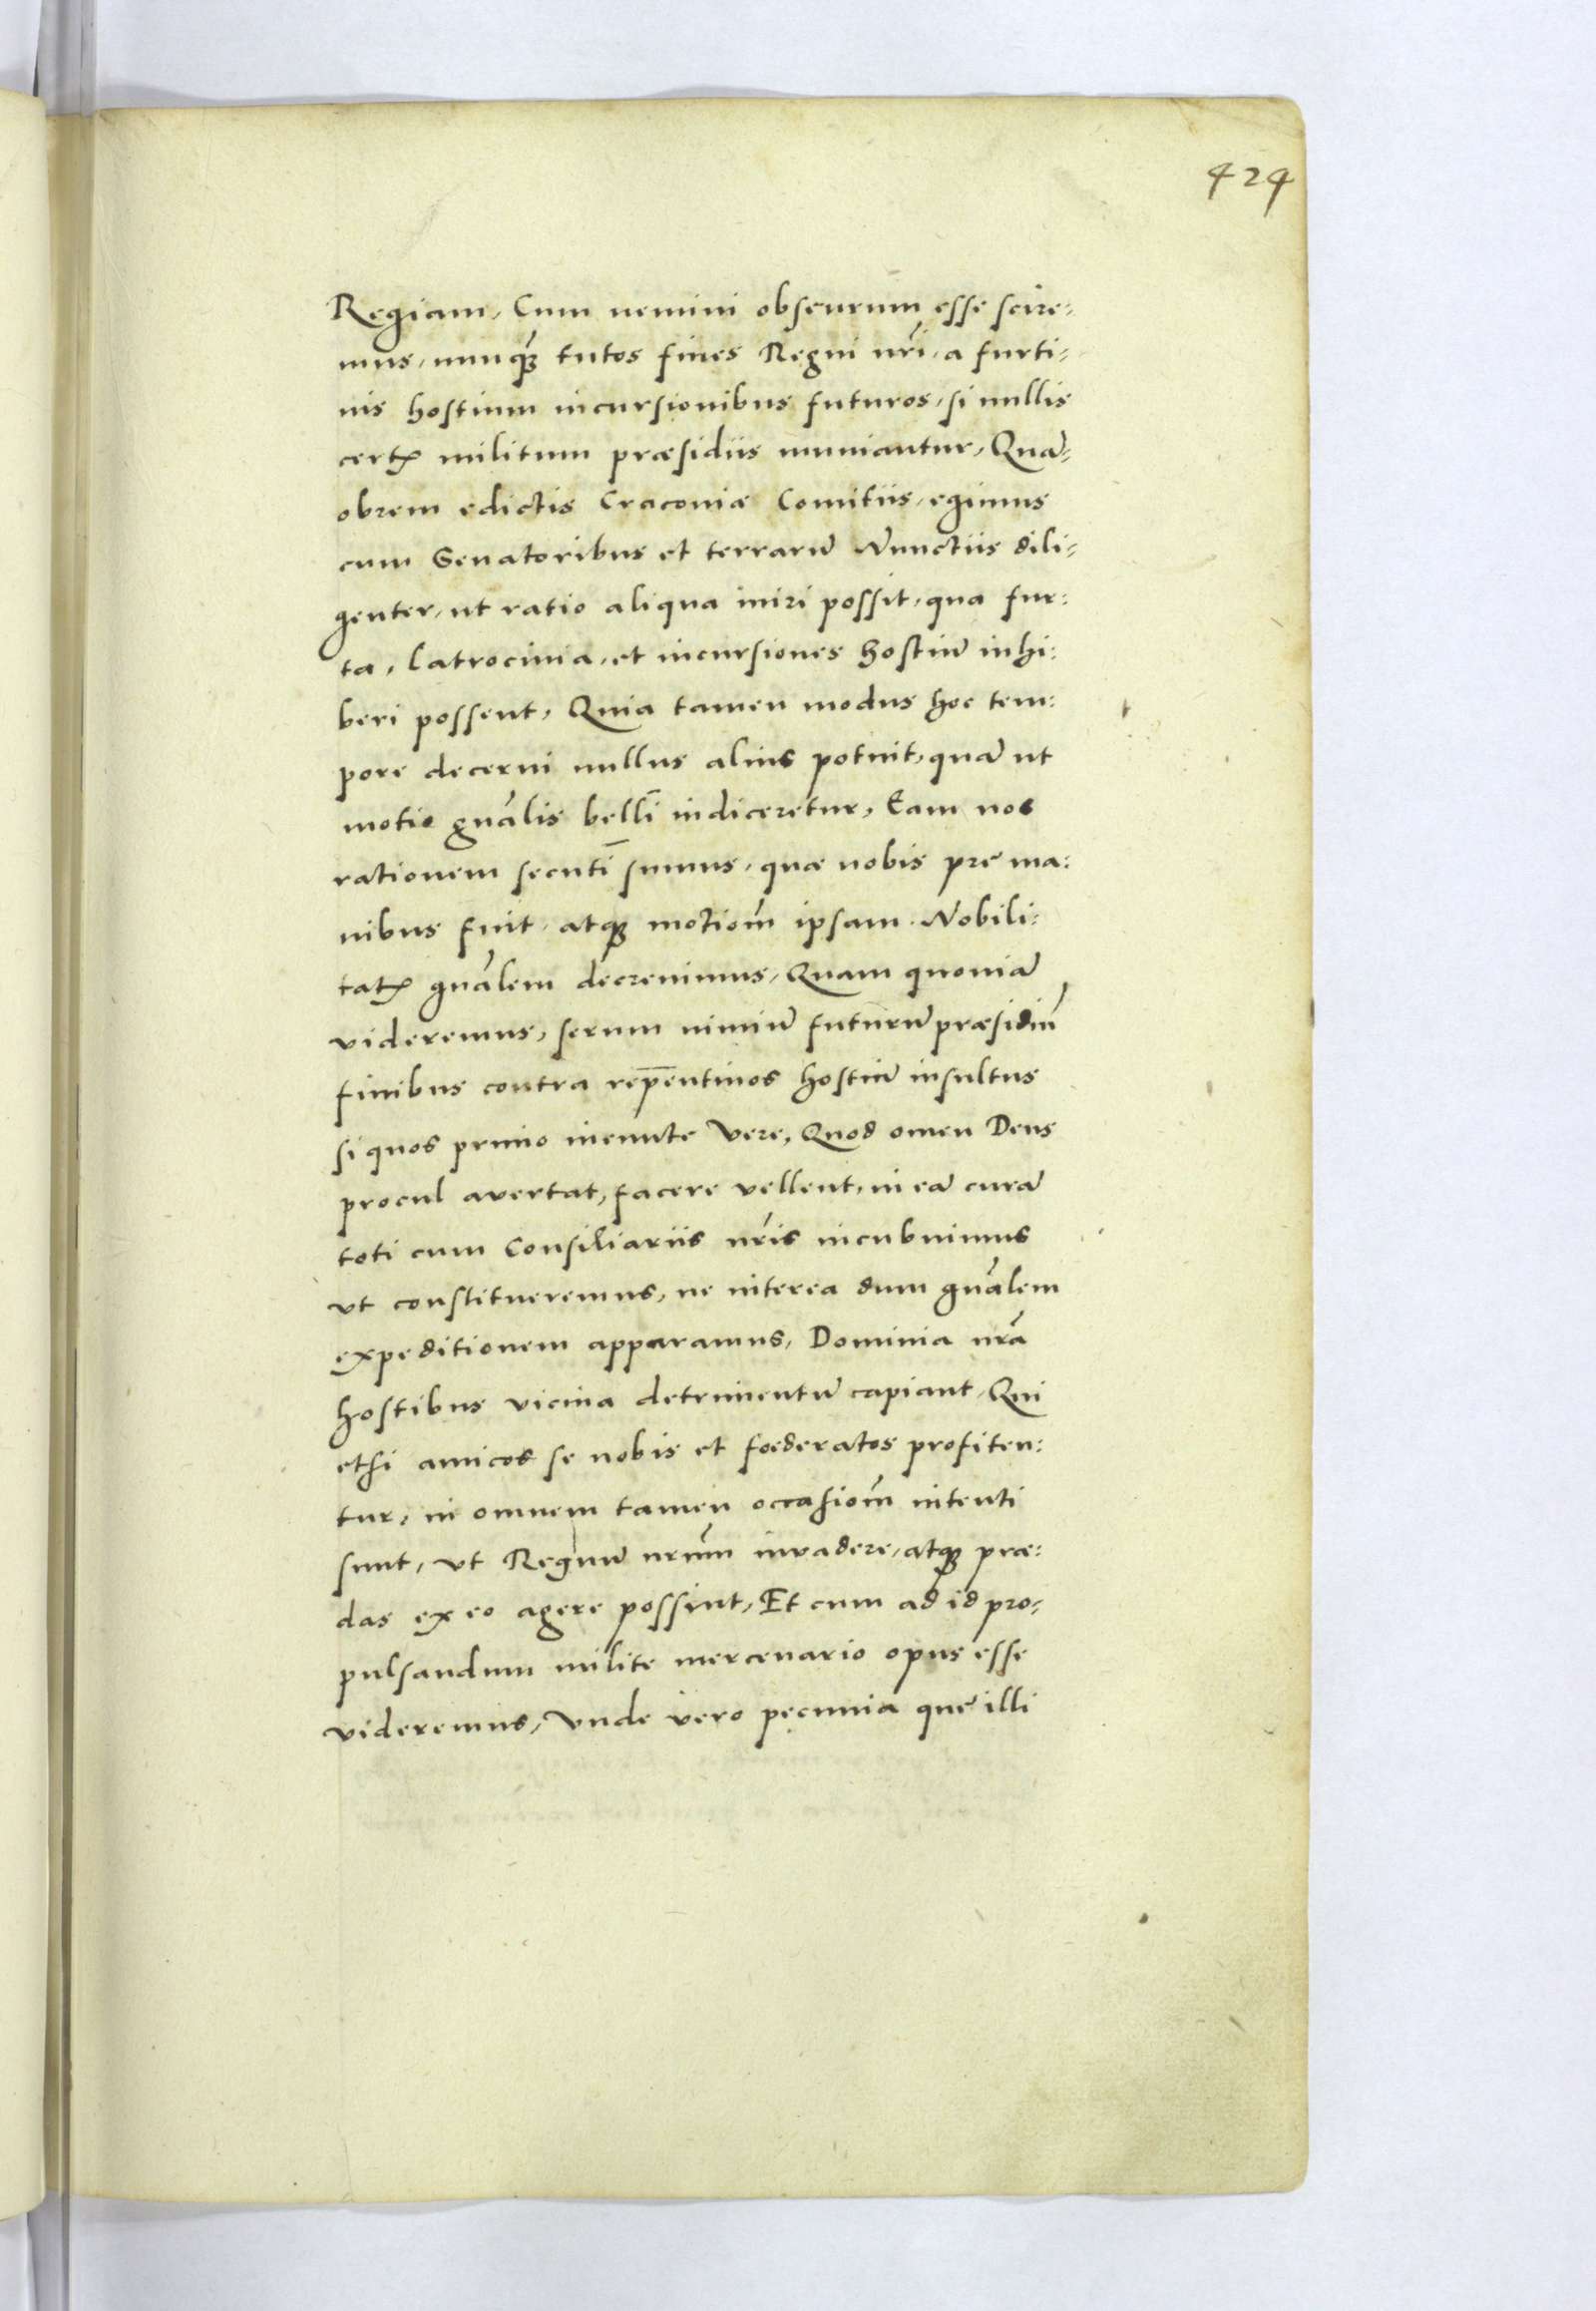 424
Regiam, Cum nemini obscurum esse scire-
mus, nunq̃ tutos fines Regni nr̃i, a furti-
uis hostium incursionibus futuros, si nullis
certꝭ militum præsidiis muniantur, Quã-
obrem edictis Cracoviæ Comitiis, egimus
cum Senatoribus et terrarũ Nunctiis dili-
genter, ut ratio aliqua iniri possit, qua fur:
ta, Latrocinia, et incursiones hostiũ inhi:
beri possent, Quia tamen modus hoc tem:
pore decerni nullus alius potuit, quã ut
motio gñalis belli indiceretur, Eam nos
rationem secuti sumus, quæ nobis præ ma:
nibus fuit, atqȝ motiom̃ ipsam Nobili:
tatꝭ gñalem decreuimus, Quam quoniã
videremus, serum nimiũ futurũ præsidiũ
finibus contra rep̄entinos hostiũ insultus
si quos primo ineunte Vere, Quod omen Deus
procul avertat, facere vellent, in eã curã
toti cum Consiliariis nr̃is incubuimus
vt constitueremus, ne interea dum gñalem
expeditionem apparamus, Dominia nr̃a
hostibus vicina detrimentũ capiant, Qui
etsi amicos se nobis et fœderatos profiten:
tur, in omnem tamen occasiom̃ intenti
sunt, vt Regnũ nrũm invadere, atqȝ præ:
das ex eo agere possint, Et cum ad id pro-
pulsandum milite mercenario opus esse
videremus, Vnde vero pecunia quę illi